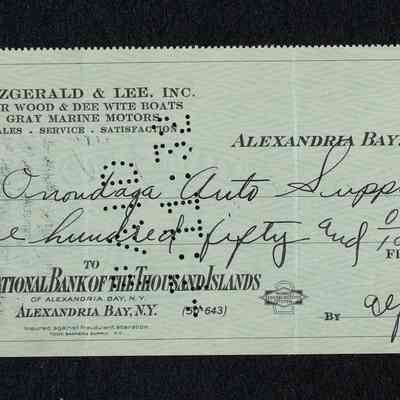 ZGERALD & LEE, INC.
R WOOD & DEE WITE BOATS
GRAY MARINE MOTORS
ALES · SERVICE · SATISFACTION
ALEXANDRIA BAY,
Onondaga Auto Supp
e hundred fifty and
TO
ATIONAL BANK OF THE THOUSAND ISLANDS
OF ALEXANDRIA BAY, N.Y.
ALEXANDRIA BAY, N.Y. (50-643)
BY
Insured against fraudulent alteration